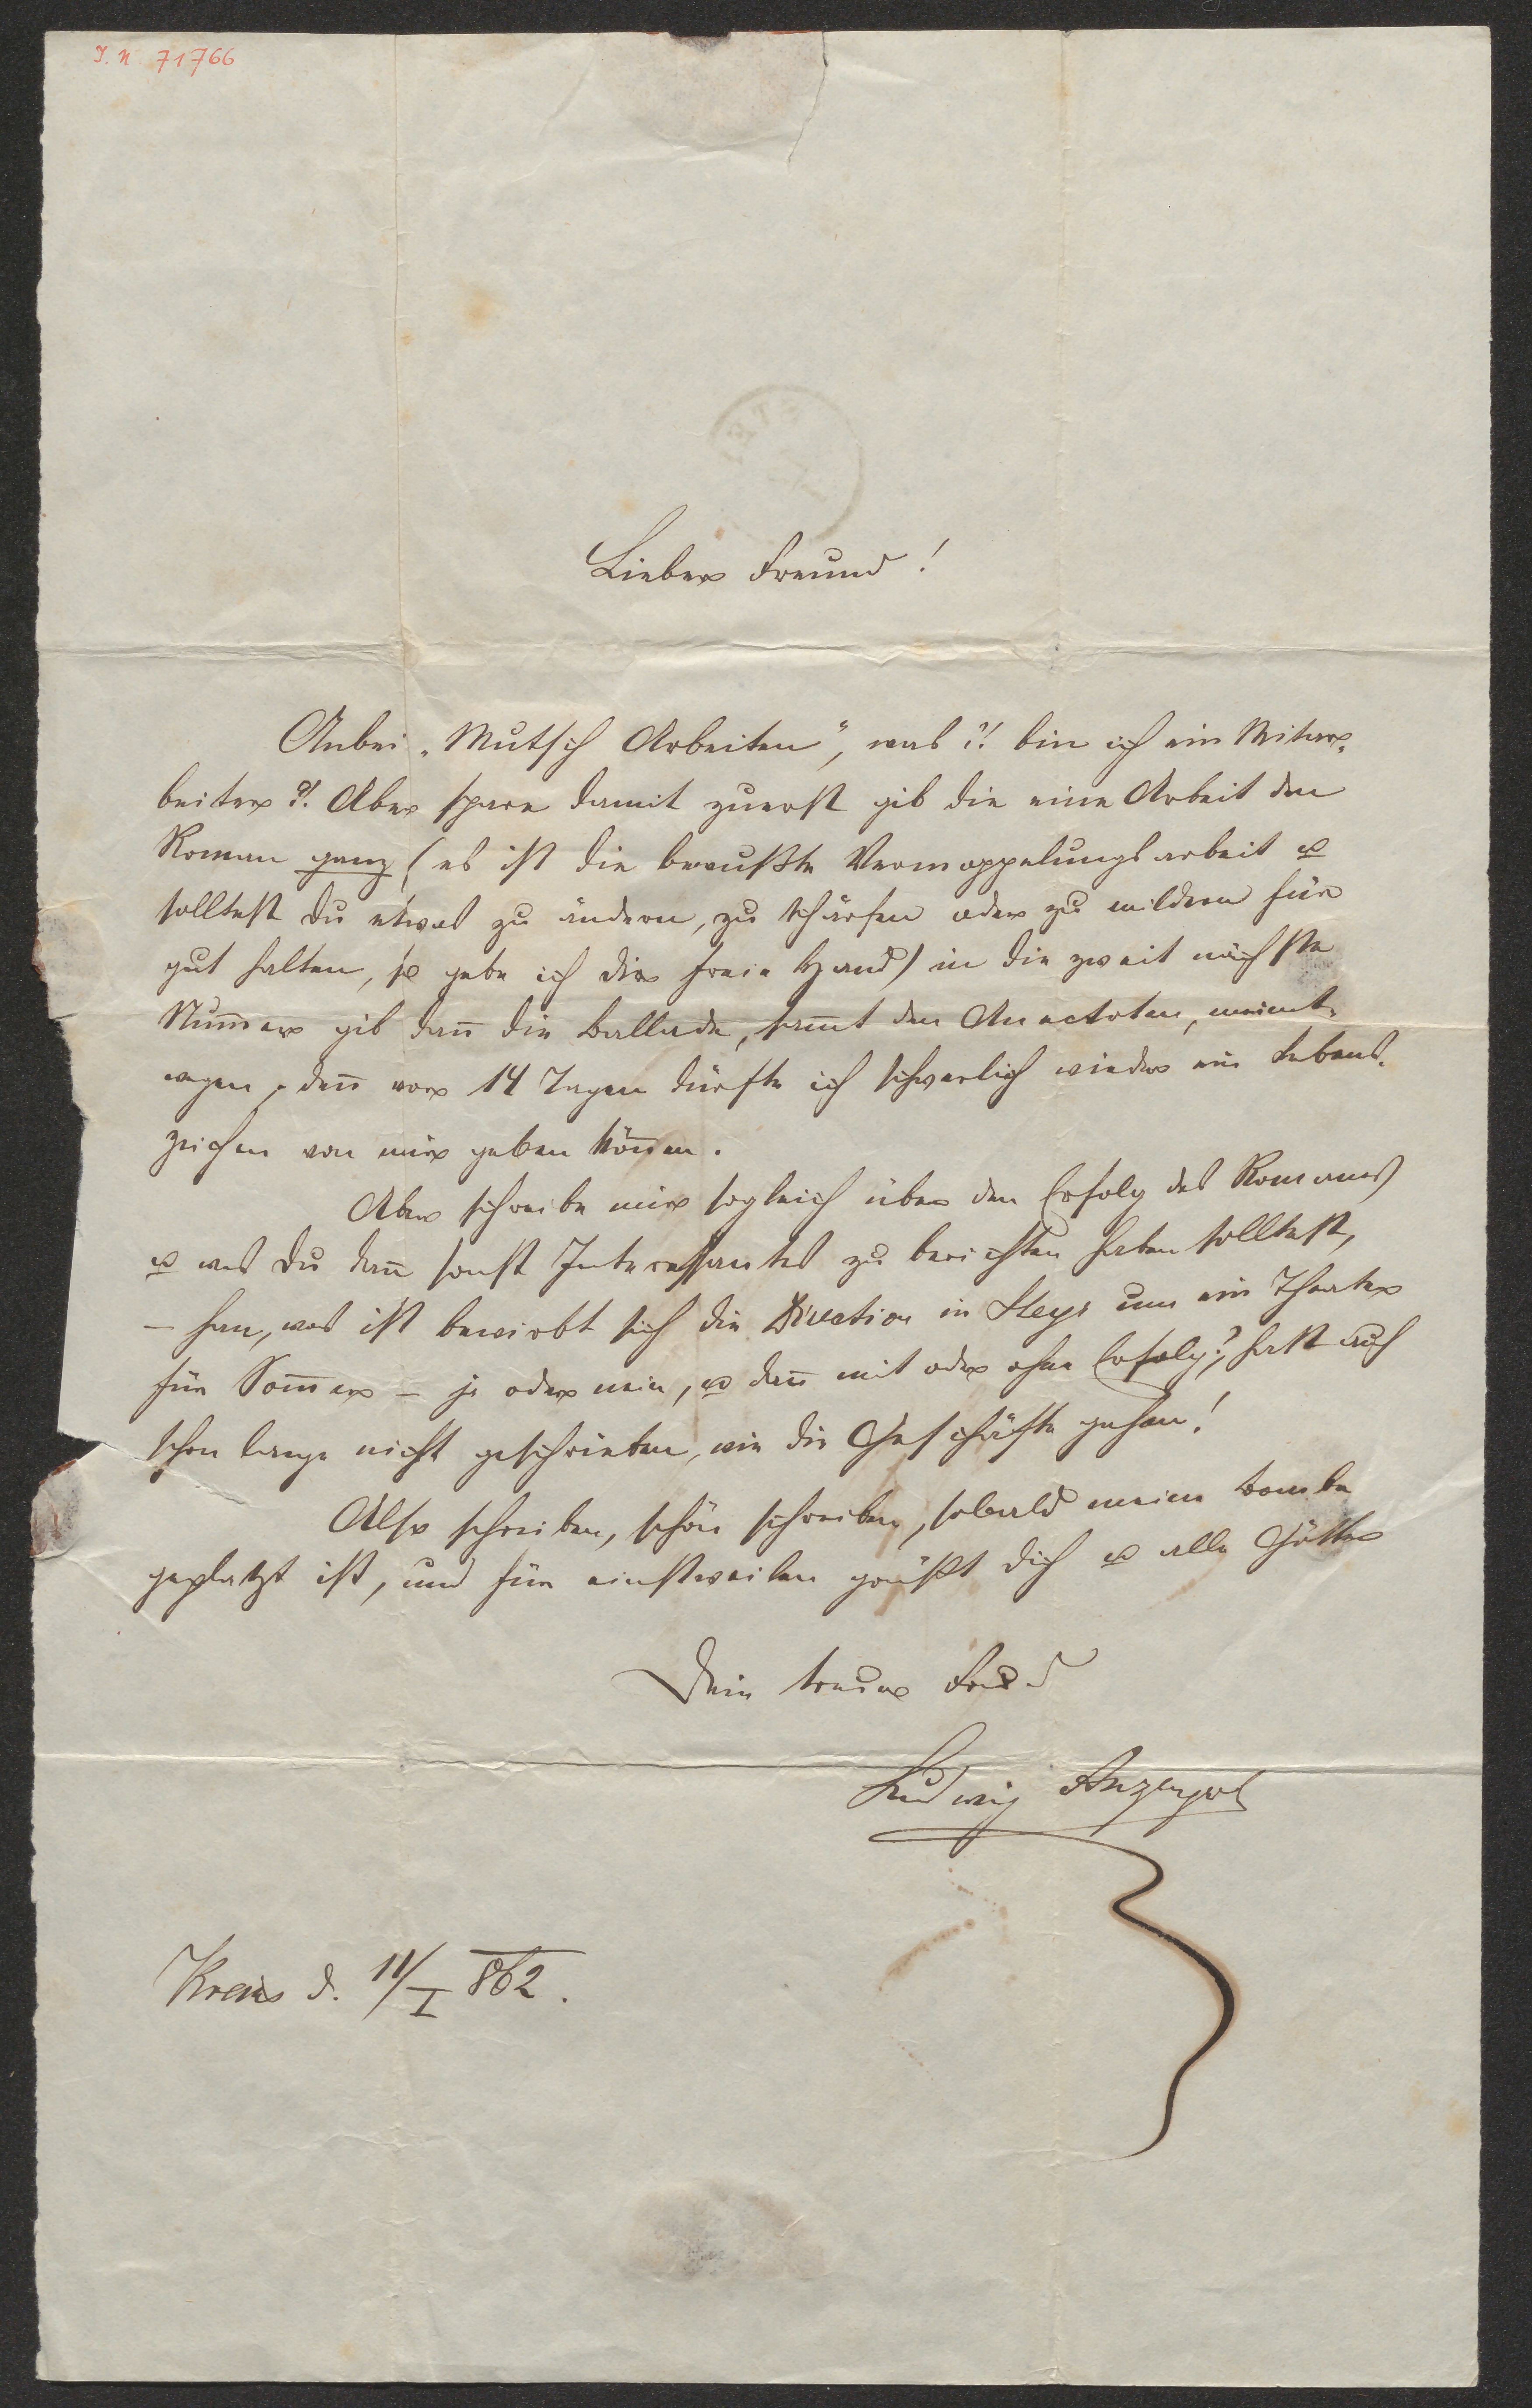 J. N. 71766
Lieber Freund!
Anbei „Mutsch Arbeiten", was?! bin ich ein Mitar-
beiter?! Aber spare damit zuerst gib die eine Arbeit den
Roman ganz (es ist die bewußte Vermoppelungsarbeit u
solltest du etwas zu ändern, zu schärfen oder zu mildern für
gut halten, so gebe ich dir freie Hand) in die zweit nächste
Num̄er gib dan̄ die Ballade, sam̄t den Anectoten, meinet-
wegen, den̄ vor 14 Tagen dürfte ich schwerlich wieder ein Lebens-
zeichen von mir geben kön̄en.
Aber schreibe mir sogleich über den Erfolg des Romans
u was du dan̄ sonst Interessantes zu berichten haben solltest,
– han, was ist bewirbt sich die Direction in Steyr um ein Theater
für Som̄er – ja oder nein, u dan̄ mit oder ohne Erfolg?, hast auch
schon lange nicht geschrieben, wie die Geschäfte gehen!
Also schreiben, schön schreiben, sobald meine Bombe
geplatzt ist, und für einstweilen grüßt dich u alle Götter
Dein treuer Freud
Ludwig Anzengrub
Krems d. 11/I 862.